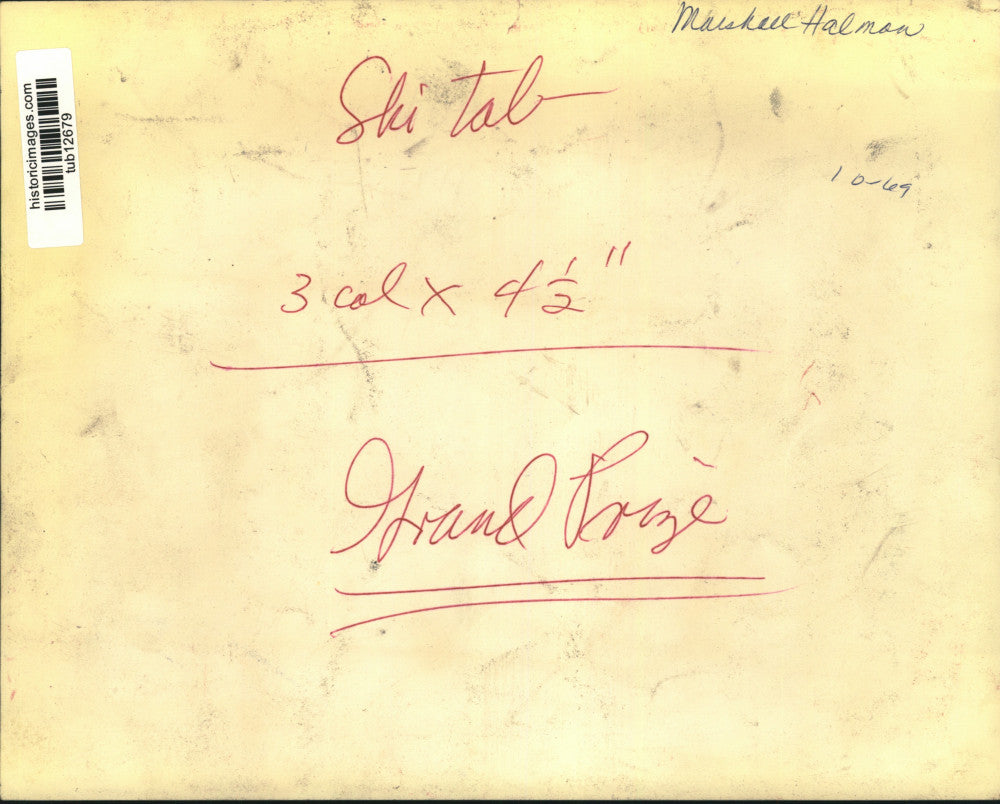 Marshall Halman
Ski tab
historicimages.com
tub12679
10-69
3 col x 4 ½"
Grand Prize